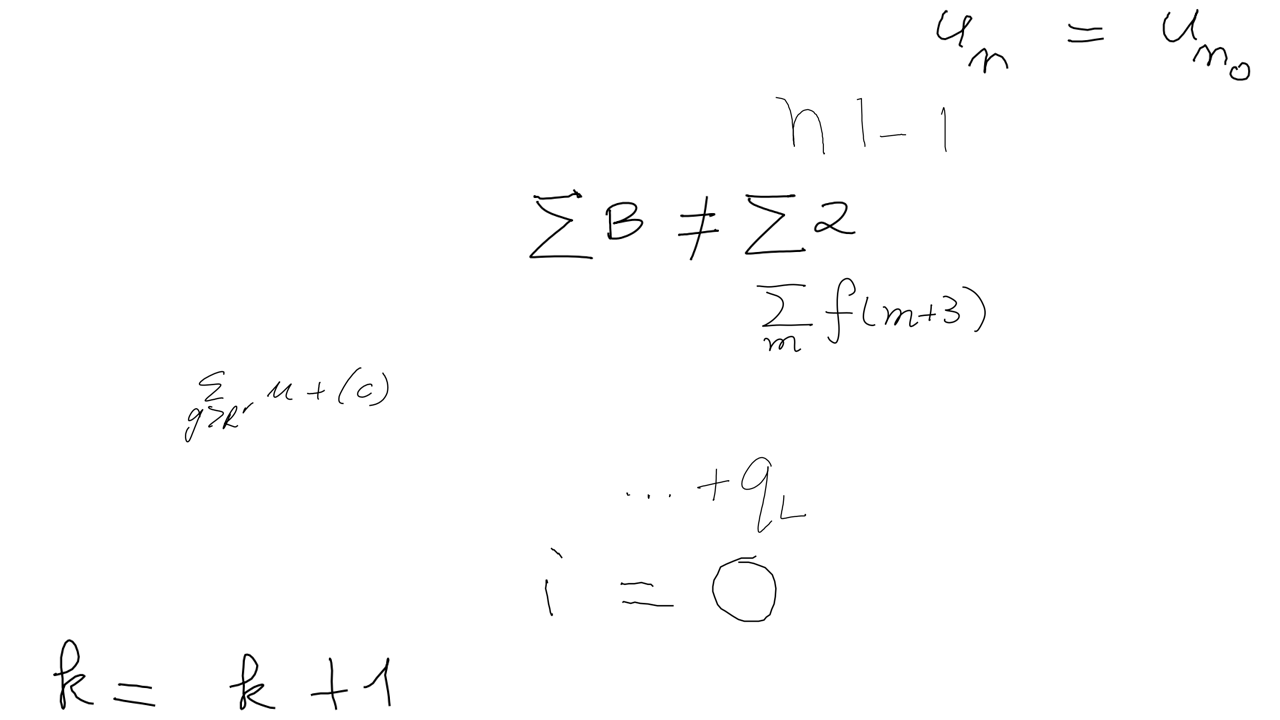 u_n = u_{n_0}
n 1 - 1
∑ B ≠ ∑ 2
∑_m f(m+3)
∑_{g>R'} u + (c)
... + q_L
i = 0
k = k + 1